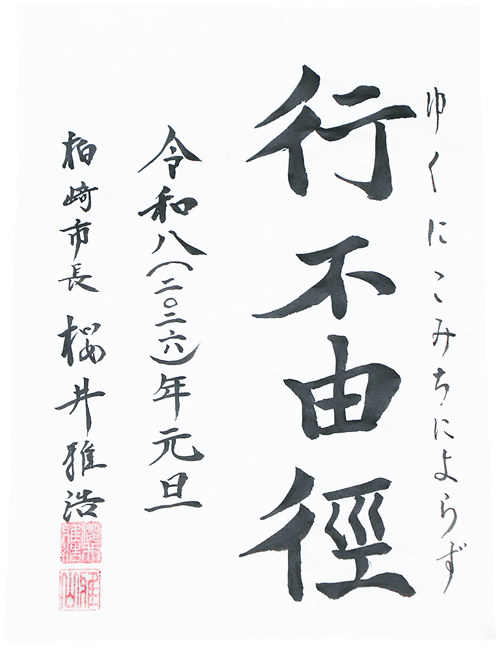 ゆくにこみちによらず
行不由徑
令和八(二〇二六)年元旦
柏崎市長 桜井雅浩